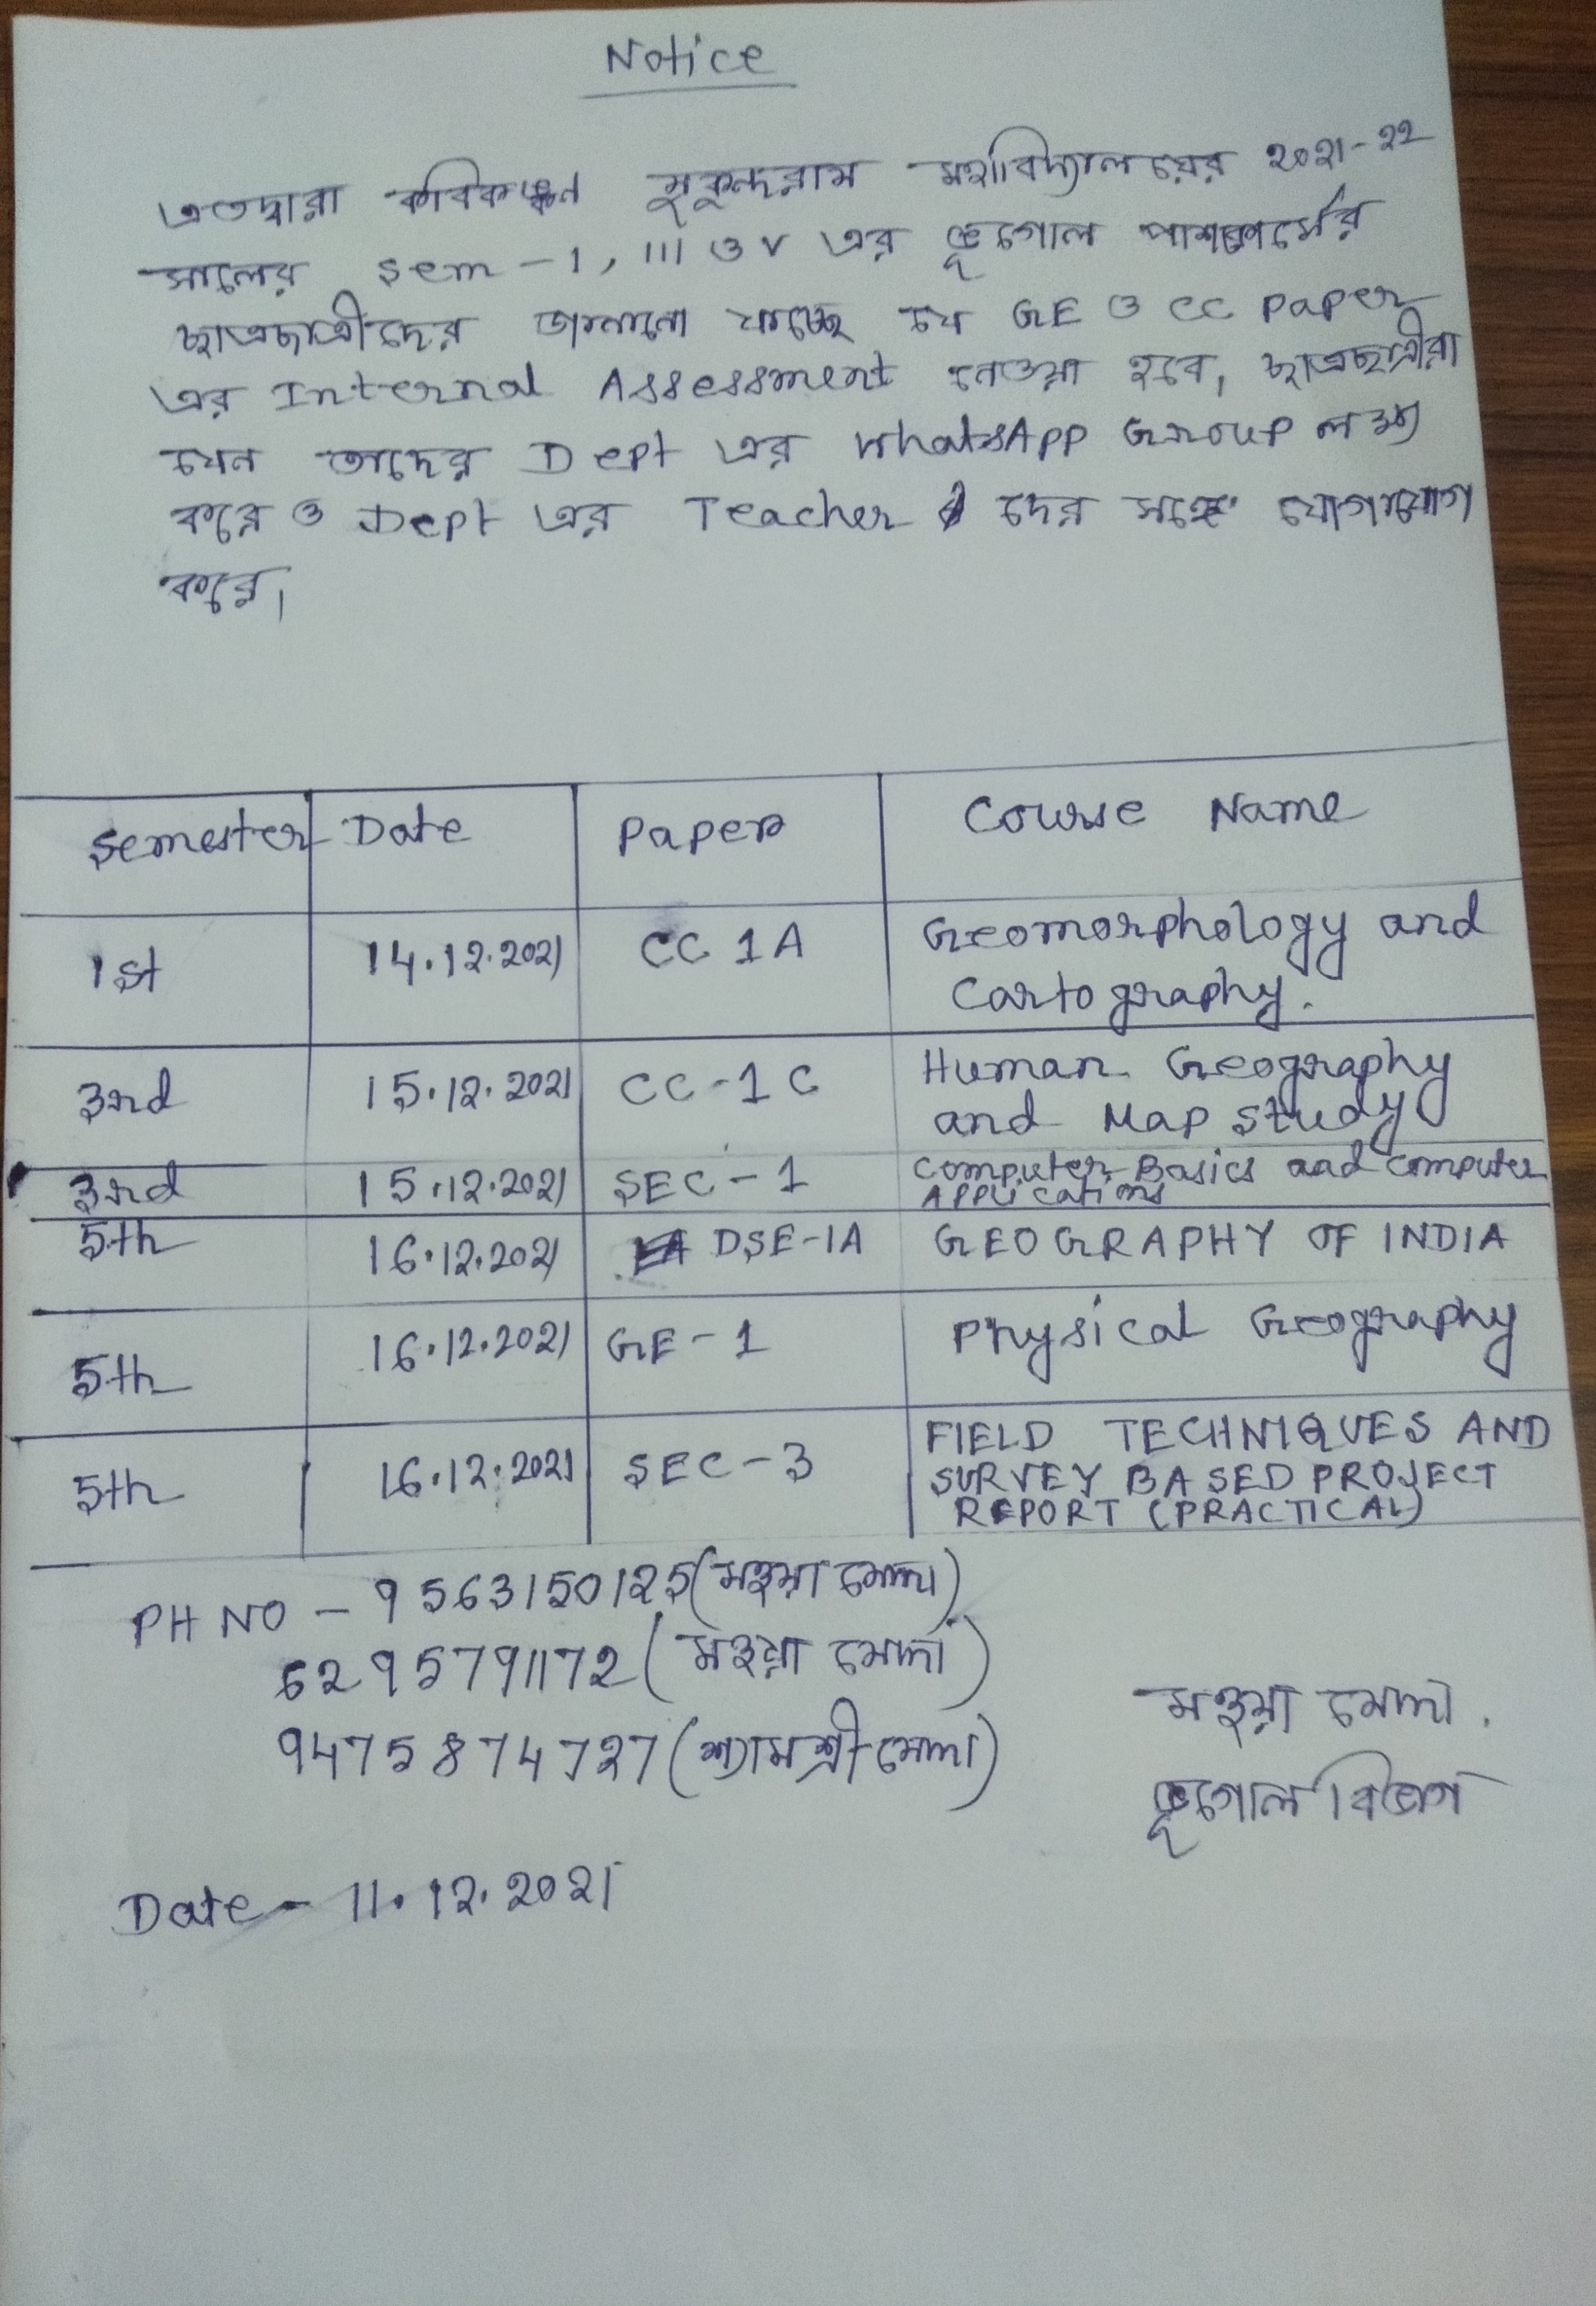 Notice
এতদ্বারা কবিকঙ্কন মুকুন্দরাম মহাবিদ্যালয়ের 2021-22
সালের Sem-1, III ও V এর ভূগোল পাশকোর্সের
ছাত্রছাত্রীদের জানানো যাচ্ছে যে GE ও CC Paper
এর Internal Assessment নেওয়া হবে, ছাত্রছাত্রীরা
যেন তাদের Dept এর WhatsApp Group লক্ষ্য
করে ও Dept এর Teacher দের সঙ্গে যোগাযোগ
করে।
Semester Date Paper Course Name
1st 14.12.2021 CC 1A Geomorphology and
Cartography.
3rd 15.12.2021 CC-1C Human Geography
and Map Study
3rd 15.12.2021 SEC-1 Computer Basics and Computer
Applications
5th 16.12.2021 DSE-1A GEOGRAPHY OF INDIA
5th 16.12.2021 GE-1 Physical Geography
5th 16.12.2021 SEC-3 FIELD TECHNIQUES AND
SURVEY BASED PROJECT
REPORT (PRACTICAL)
PH NO - 9563150125 (মহুয়া মোদ্দা)
6295791172 (মহুয়া মোদ্দা)
9475874727 (শ্যামশ্রী মোদ্দা)
মহুয়া মোদ্দা.
ভূগোল বিভাগ
Date - 11.12.2021